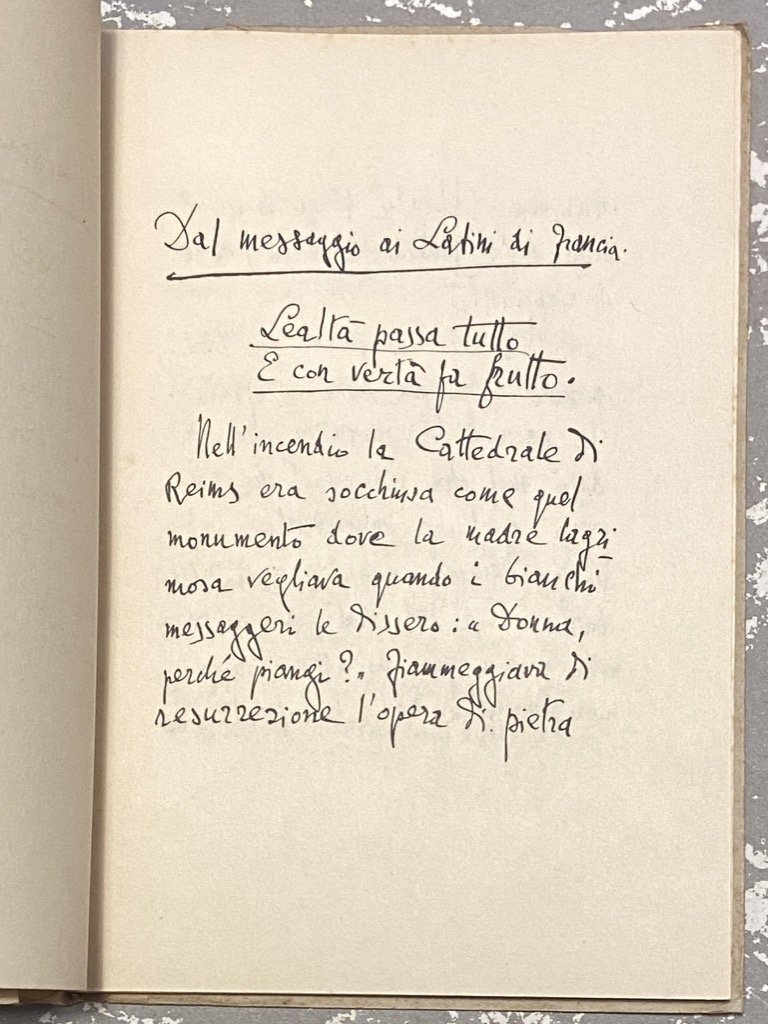 Dal messaggio ai Latini di Francia.
Lealtà passa tutto
E con vertà fa frutto.
Nell'incendio la Cattedrale di
Reims era socchiusa come quel
monumento dove la madre lagri
mosa vegliava quando i bianchi
messaggeri le dissero: « Donna,
perché piangi?» Fiammeggiava di
resurrezione l'opera di pietra